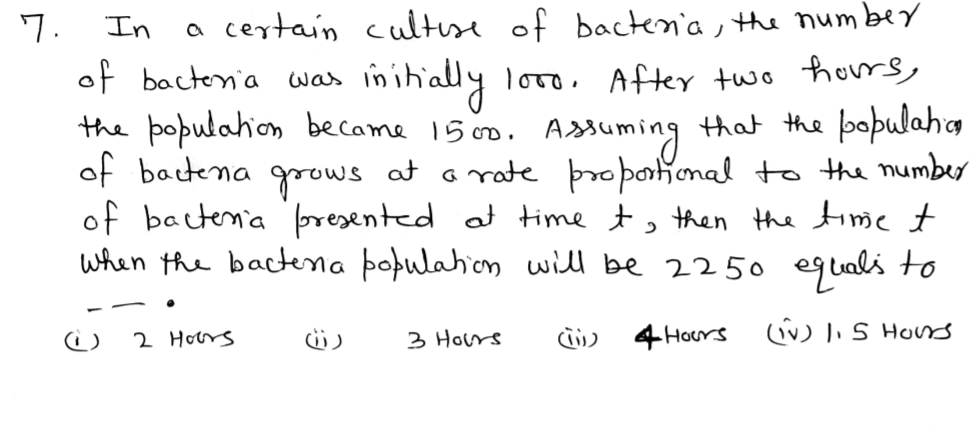 7. In a certain culture of bacteria, the number
of bacteria was initially 1000. After two hours,
the population became 1500. Assuming that the population
of bacteria grows at a rate proportional to the number
of bacteria presented at time t, then the time t
when the bacteria population will be 2250 equals to
---.
(i) 2 Hours (ii) 3 Hours (iii) 4 Hours (iv) 1.5 Hours